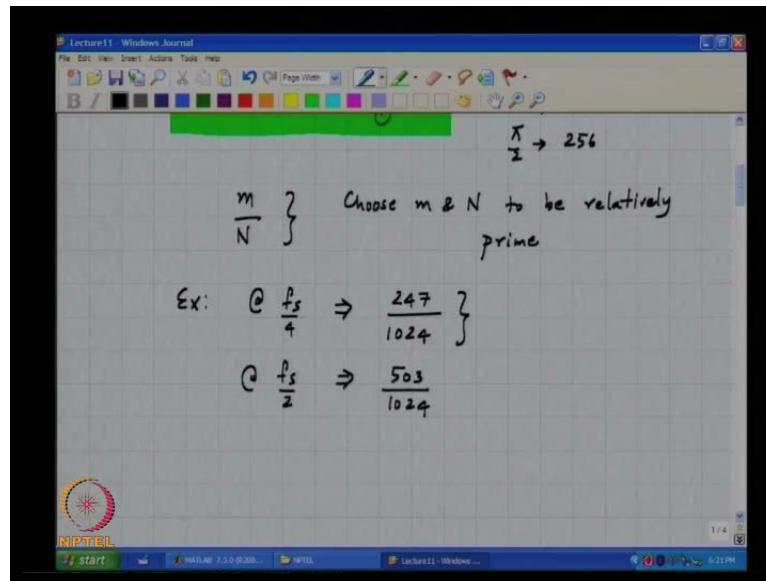 Lecture11 - Windows Journal
File Edit View Insert Actions Tools Help
Page Width
B I
π/2 → 256
m/N } Choose m & N to be relatively
prime
Ex: @ fs/4 ⇒ 247/1024 }
@ fs/2 ⇒ 503/1024
NPTEL
1 / 4
start
MATLAB 7.3.0 (R200...
NPTEL
Lecture11 - Windows ...
6:21 PM